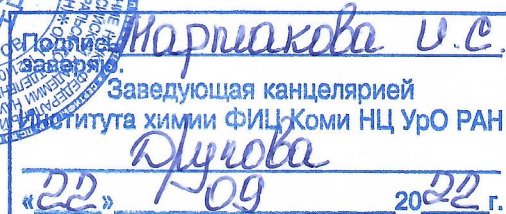 Подпись Мартакова И.С.
заверяю.
Заведующая канцелярией
Института химии ФИЦ Коми НЦ УрО РАН
Другова
«22» 09 2022 г.